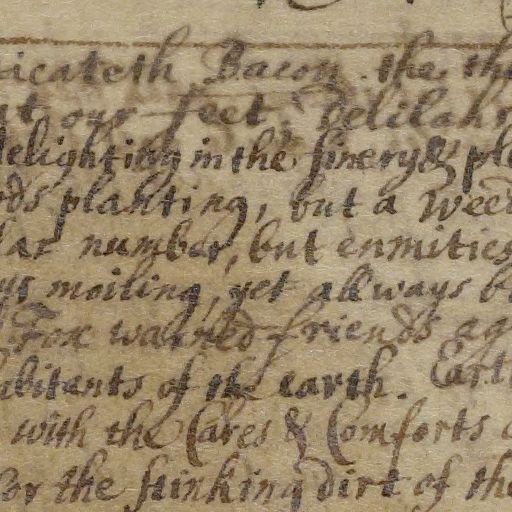 icateth Bacon. the th
at our feet; Delilah
delighting in the finery & pl
ods planting, but a Weed
lar number, but enmities
moiling, yet always b
Fox warned friends ag
abitants of the earth. Eart
with the Cares & Comforts
or the stinking dirt of the